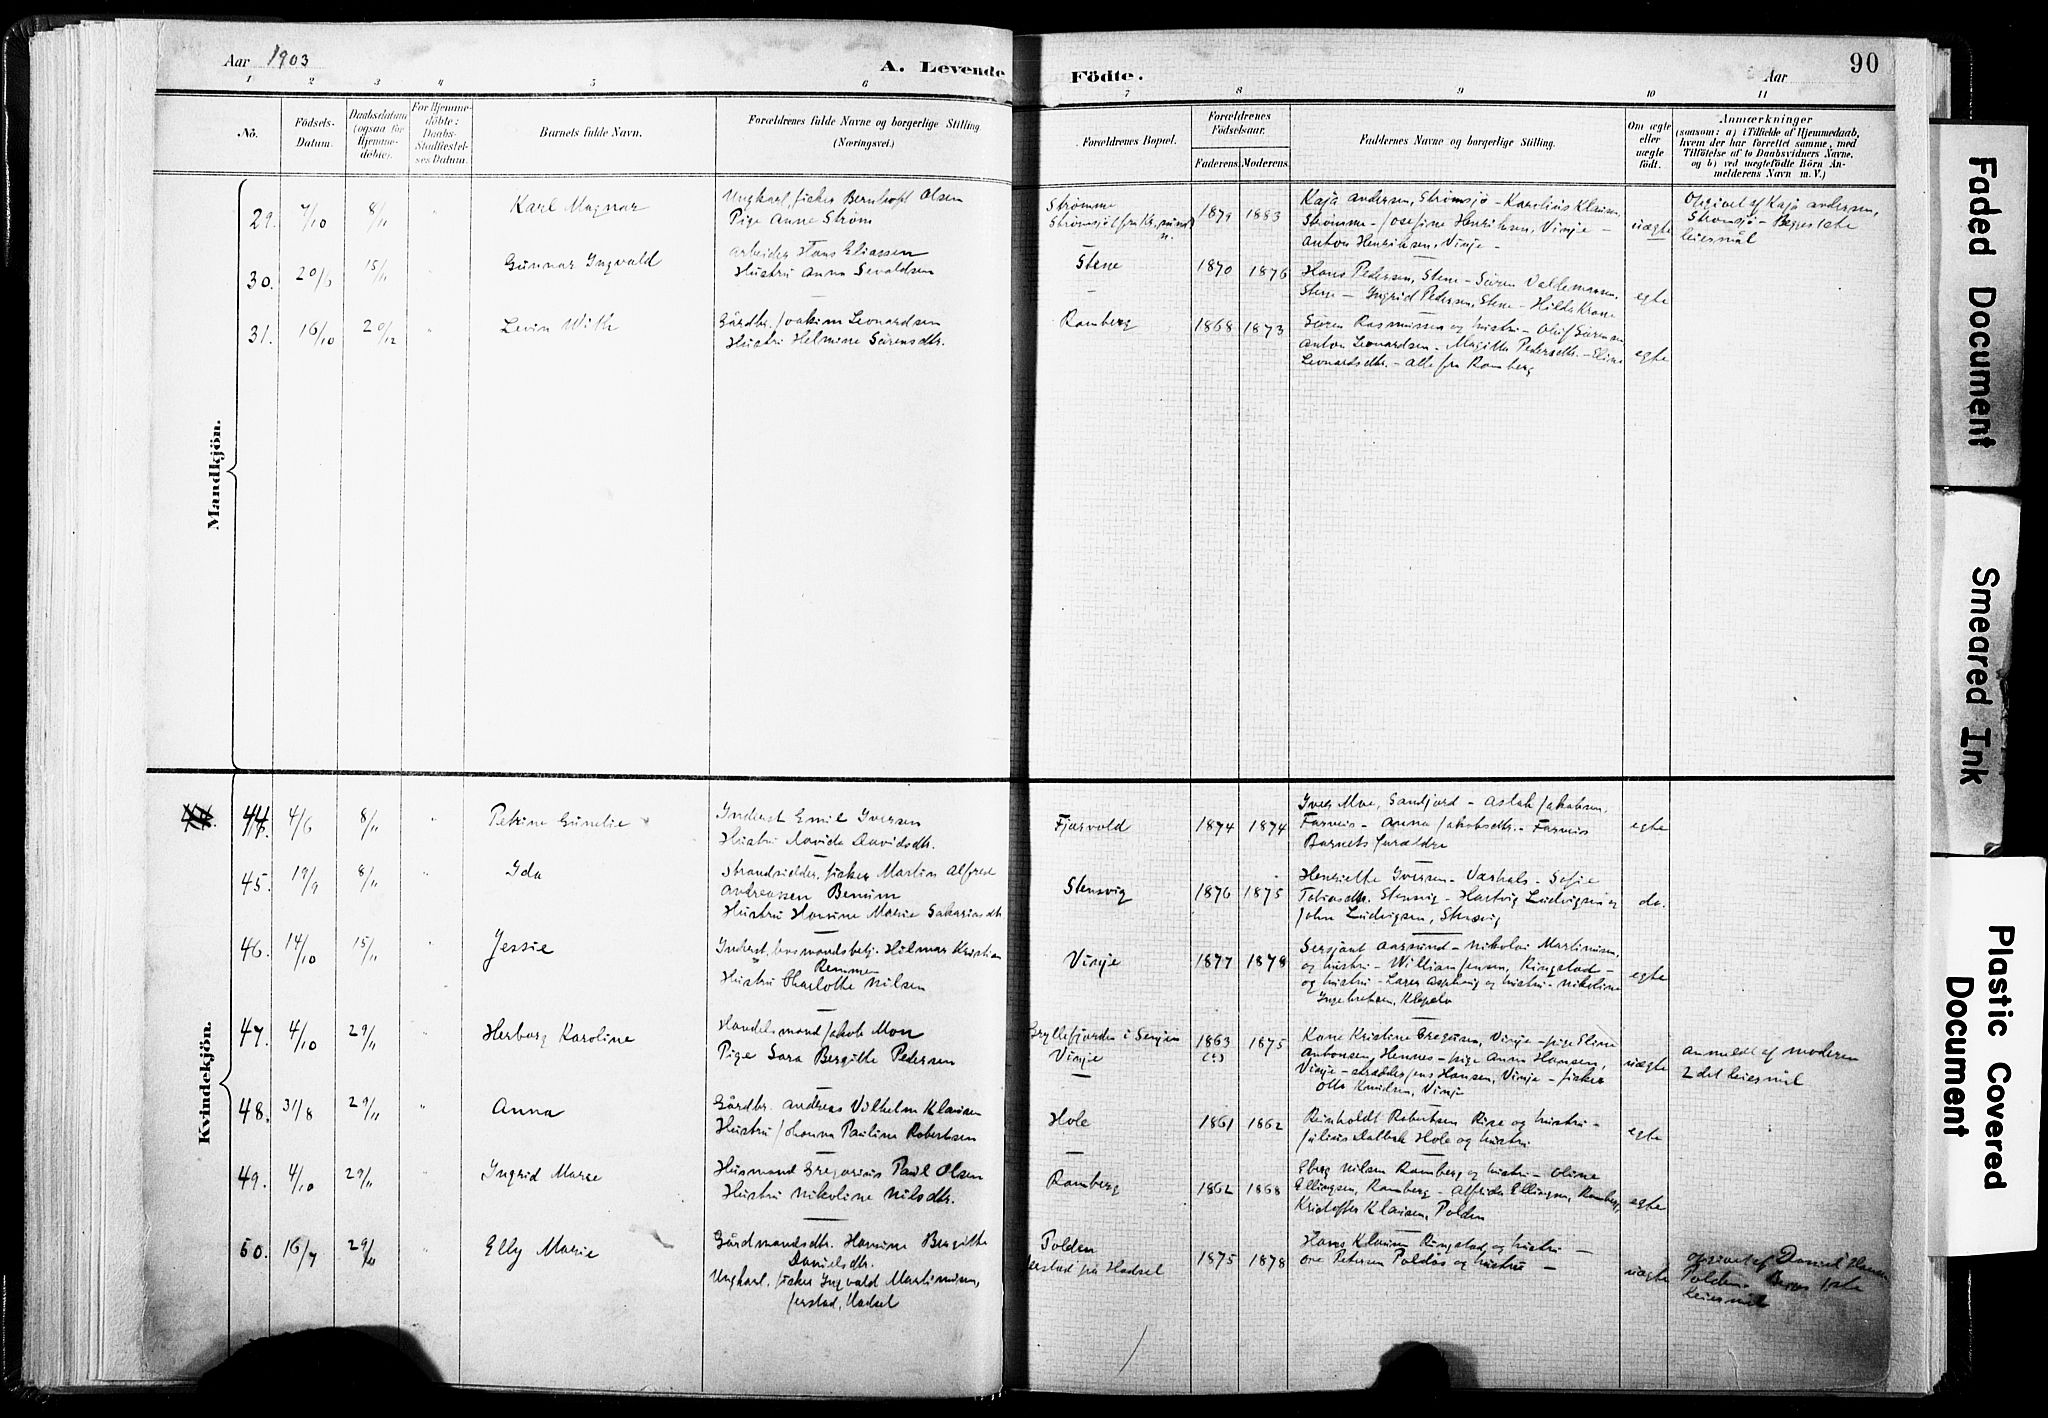 Aar 1903
A. Levende Födte.
Aar
90
1 2 3 4 5 6 7 8 9 10 11
No.
Födsels-Datum.
Daabsdatum (ogsaa for Hjemmedöbte).
For Hjemmedöbte: Daabs-Stadfæstelses Datum.
Barnets fulde Navn.
Forældrenes fulde Navne og borgerlige Stilling
(Næringsvei.)
Forældrenes Bopæl.
Forældrenes Födselsaar.
Faderens Moderens
Faddernes Navne og borgerlige Stilling.
Om ægte eller uægte födt.
Anmærkninger
(saasom: a) i Tilfælde af Hjemmedaab,
hvem der har forrettet samme, med
Tilföielse af to Daabsvidners Navne,
og b) ved uægtefödte Börn An-
melderens Navn m. V.)
Mandkjön.
29. 7/10 8/11 " Karl Magnar
Ungkarl, fisker Bernhoft Olsen
Pige Anne Strøm
Strømme
Strømsjö
1879 1883
Kaja Andersen, Strømsjö - Karolius Klausen,
Strømme - Josefine Henriksen, Vinje -
Anton Henriksen, Vinje -
uægte
Opgivet af Kaja Andersen,
Strømsjö - Begges 1ste
leiermål
30. 20/9 15/11 " Gunnar Ingvald
Arbeider Hans Eliassen
Hustru Anna Sevaldsen
Stene
1870 1876
Hans Pedersen, Stene - Sören Valdemarsen,
Stene - Ingrid Pedersen, Stene - Hilda Krane
egte
31. 16/10 20/12 " Levin With
Gårdbr. Joakim Leonardsen
Hustru Helmine Sörensdtr.
Ramberg
1868 1873
Sören Rasmussen og hustru - Oluf Sörensen
Anton Leonardsen - Magitta Pedersdtr. - Eline
Leonardsdtr. - Alle fra Ramberg
egte
Kvindekjön.
44. 4/6 8/11 " Petrine Gunelie
Inderst Emil Iversen
Hustru Davida Davidsdtr.
Fjærvold
1874 1874
Iver Moe, Sandjord - Aslak Jakobsen
Farneis - Anna Jakobsdtr. - Farneis
Barnets forældre
egte
45. 19/9 8/11 " Ida
Strandsidder, fisker Martin Alfred
Andreassen Benum
Hustru Hansine Marie Sakariasdtr
Stensvig
1876 1875
Henriette Iversen - Værhals - Sofie
Tobiasdtr. Stensvig - Hartvig Ludvigsen og
John Ludvigsen, Stensvig
do.
46. 14/10 15/11 " Jessie
Inderst, losmandsbetj. Hilmar Kristian
Remmen
Hustru Charlotte Nilsen
Vinje
1877 1878
Sersjant Aarsund - Nikolai Martinusen,
og hustru - William Jensen, Ringstad -
og hustru - Lars Asphaug og hustru - Nikoline
Ingebretsen, Klepelv
egte
47. 4/10 29/11 " Herborg Karoline
Handelsmand Jakob Moe
Pige Sara Bergitte Pedersen
Gryllefjorden i Senjen
Vinje
1863 (?) 1875
Kone Kristine Gregusen, Vinje - pige Eline
Antonsen, Hennes - pige Anna Hansen,
Vinje - skrædder Jens Hansen, Vinje - fisker
Otto Knudsen, Vinje
uægte
Anmeldt af moderen
2det leiermål
48. 31/8 29/11 " Anna
Gårdbr. Andreas Vilhelm Klausen
Hustru Johanna Pauline Robertsen
Hole
1861 1862
Reinholdt Robertsen Rise og hustru -
Julius Dalbak Hole og hustru
egte
49. 4/10 29/11 " Ingrid Marie
Husmand Gregorius Paul Olsen
Hustru Nikoline Nilsdtr.
Ramberg
1862 1868
Eberg Nilsen Ramberg og hustru - Oline
Ellingsen, Ramberg - Alfrida Ellingsen, Ramberg,
Kristoffer Klausen, Polden
egte
50. 16/7 29/11 " Elly Marie
Gårdmandsdtr. Hansine Bergitte
Danielsdtr.
Ungkarl, fisker Ingvald Martinusen,
Jerstad, Hadsel
Polden
Jerstad på Hadsel
1875 1878
Hans Klausen Ringstad og hustru -
Ove Petersen Poldås og hustru -
uægte
Opgivet af Daniel Hansen
Polden. Begges 1ste
leiermål
Faded Document
Smeared Ink
Plastic Covered
Document